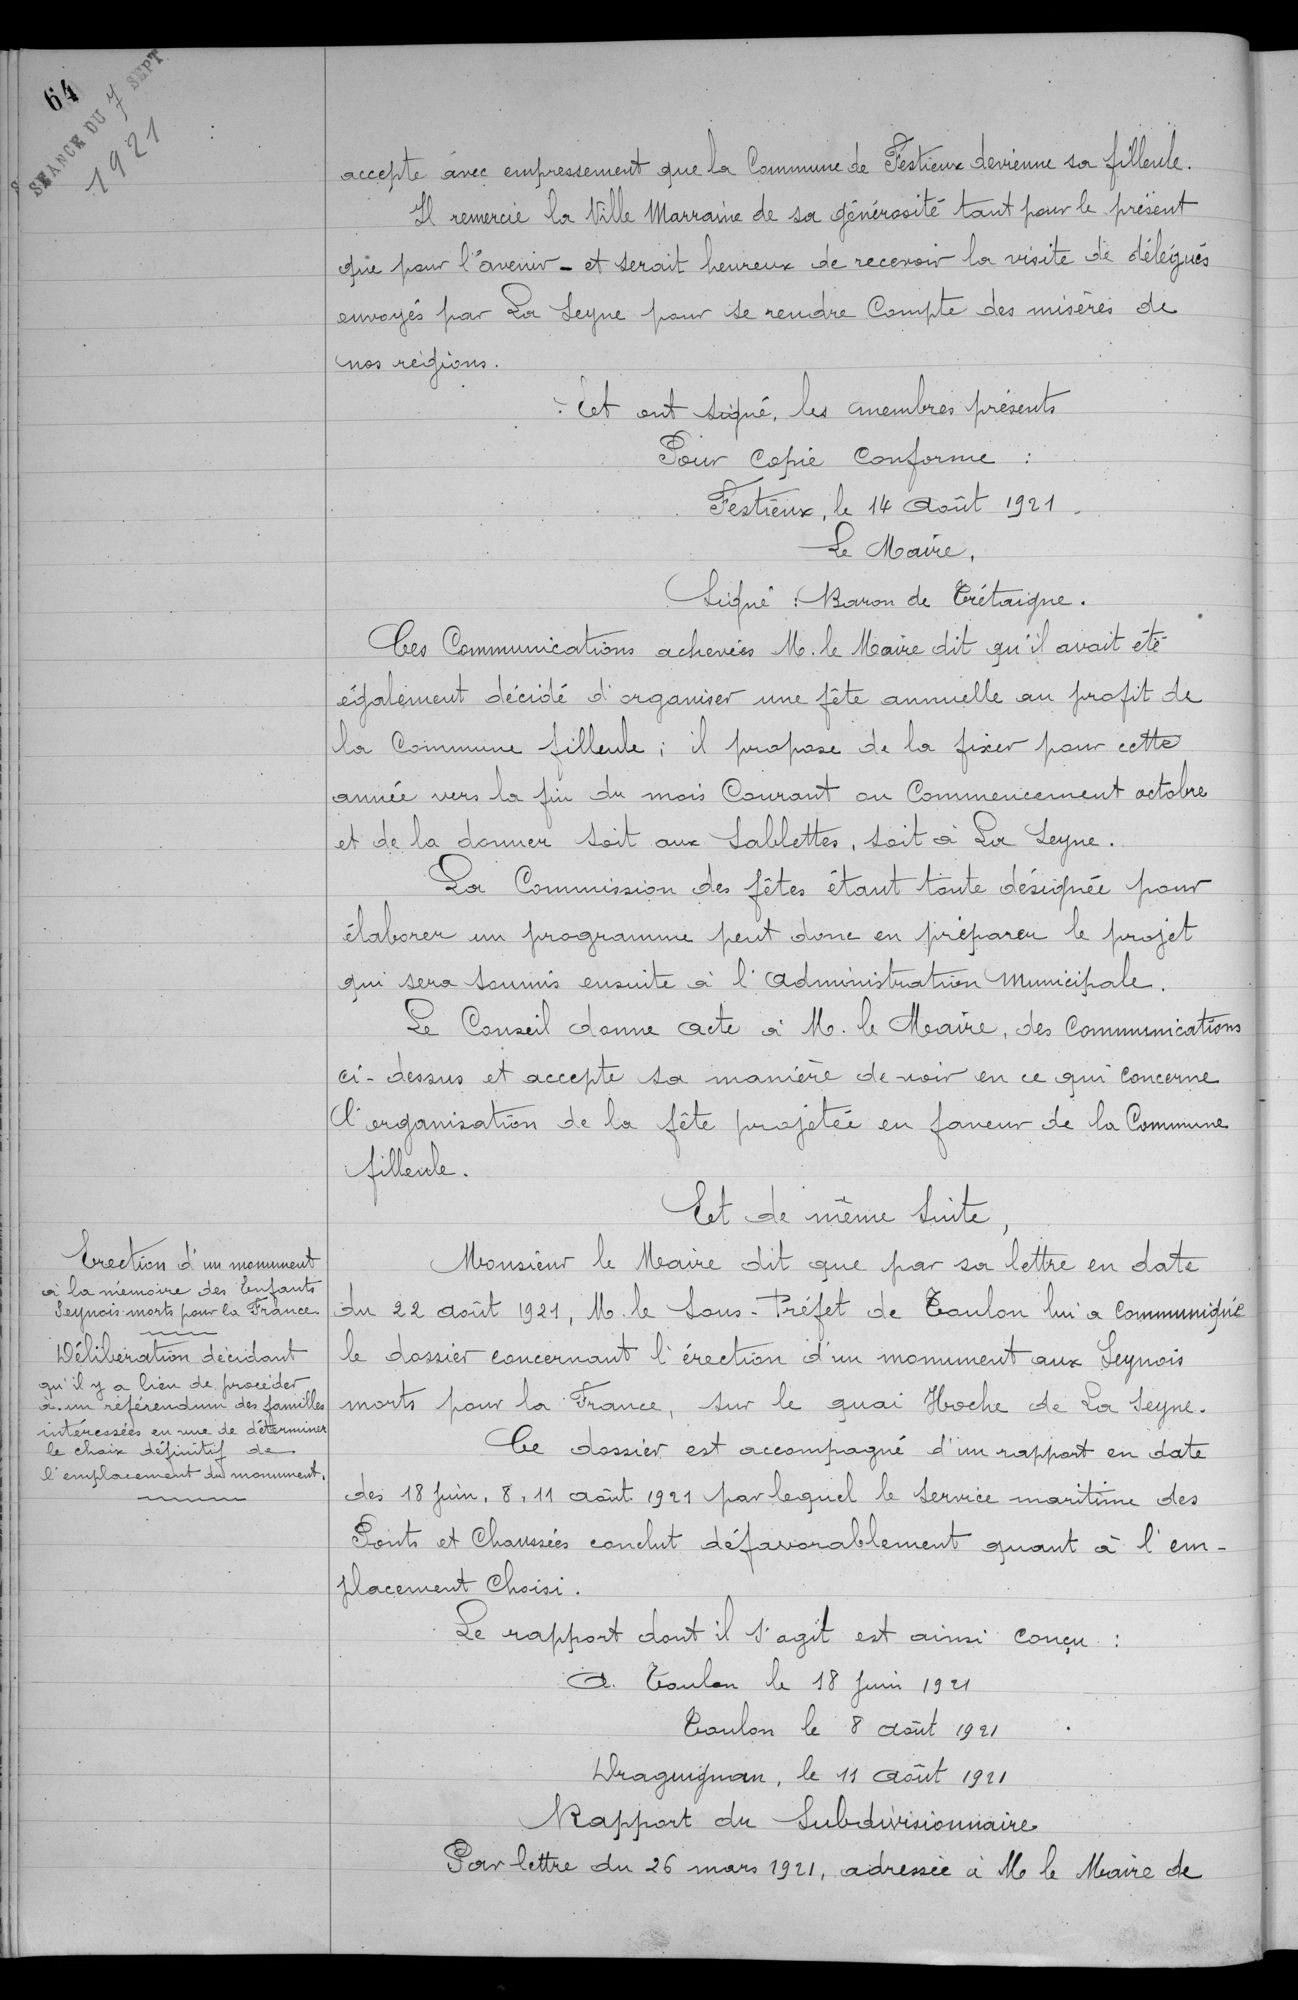 64
SEANCE DU 7 SEPT
1921
accepte avec empressement que la Commune de Festieux devienne sa filleule.
Il remercie la Ville Marraine de sa générosité tant pour le présent
que pour l'avenir - et serait heureux de recevoir la visite de délégués
envoyés par La Seyne pour se rendre Compte des misères de
nos régions.
Et ont signé, les membres présents
Pour Copie Conforme :
Festieux, le 14 Août 1921.
Le Maire,
Signé : Baron de Crétaigne.
Ces Communications achevées M. le Maire dit qu'il avait été
également décidé d'organiser une fête annuelle au profit de
la Commune filleule ; il propose de la fixer pour cette
année vers la fin du mois Courant ou Commencement octobre
et de la donner soit aux Sablettes, soit à La Seyne.
La Commission des fêtes étant toute désignée pour
élaborer un programme peut donc en préparer le projet
qui sera soumis ensuite à l'Administration Municipale.
Le Conseil donne acte à M. le Maire, des Communications
ci-dessus et accepte sa manière de voir en ce qui concerne
l'organisation de la fête projetée en faveur de la Commune
filleule.
Et de même suite,
Erection d'un monument
à la mémoire des Enfants
Seynois morts pour la France.
Délibération décidant
qu'il y a lieu de procéder
à un référendum des familles
intéressées en vue de déterminer
le choix définitif de
l'emplacement du monument.
Monsieur le Maire dit que par sa lettre en date
du 22 août 1921, M. le Sous-Préfet de Toulon lui a Communiqué
le dossier concernant l'érection d'un monument aux Seynois
morts pour la France, sur le quai Hoche de La Seyne.
Ce dossier est accompagné d'un rapport en date
des 18 Juin, 8, 11 août 1921 par lequel le Service maritime des
Ponts et Chaussées conclut défavorablement quant à l'em-
placement Choisi.
Le rapport dont il s'agit est ainsi conçu :
A. Toulon le 18 Juin 1921
Toulon le 8 août 1921
Draguignan, le 11 Août 1921
Rapport du Subdivisionnaire
Par lettre du 26 mars 1921, adressée à M le Maire de